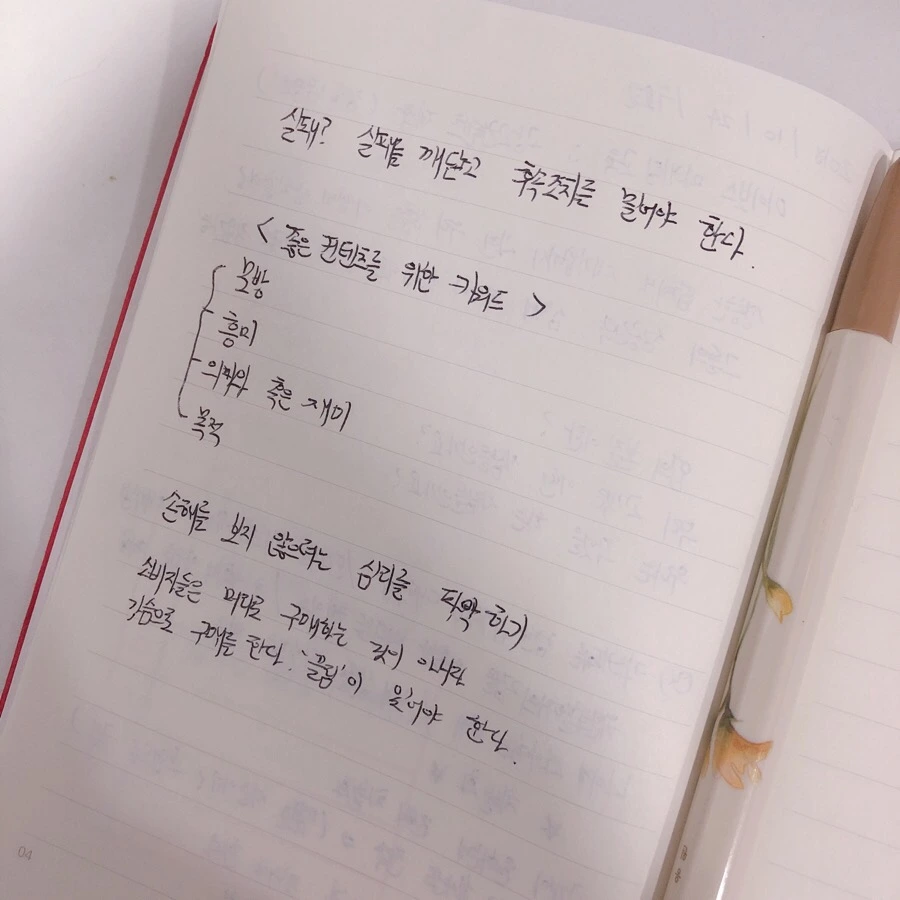 실패? 실패를 깨닫고 후속조치를 물어야 한다.
< 좋은 컨텐츠를 위한 키워드 >
모방
흥미
의외의 혹은 재미
목적
손해를 보지 않으려는 심리를 파악하기
소비자들은 머리로 구매하는 것이 아니라
가슴으로 구매를 한다. '끌림'이 있어야 한다.
04